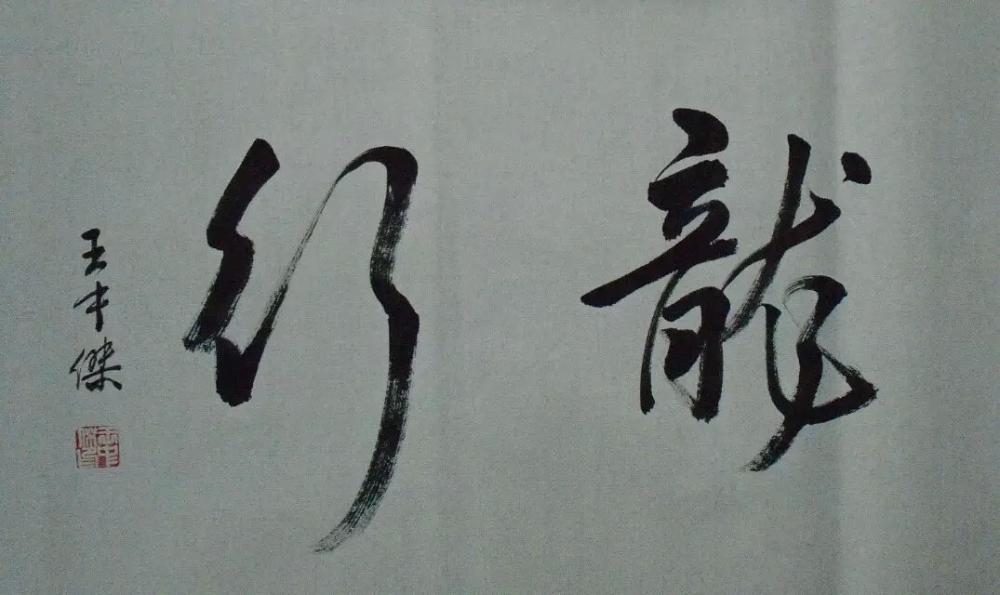 龍行
王中傑